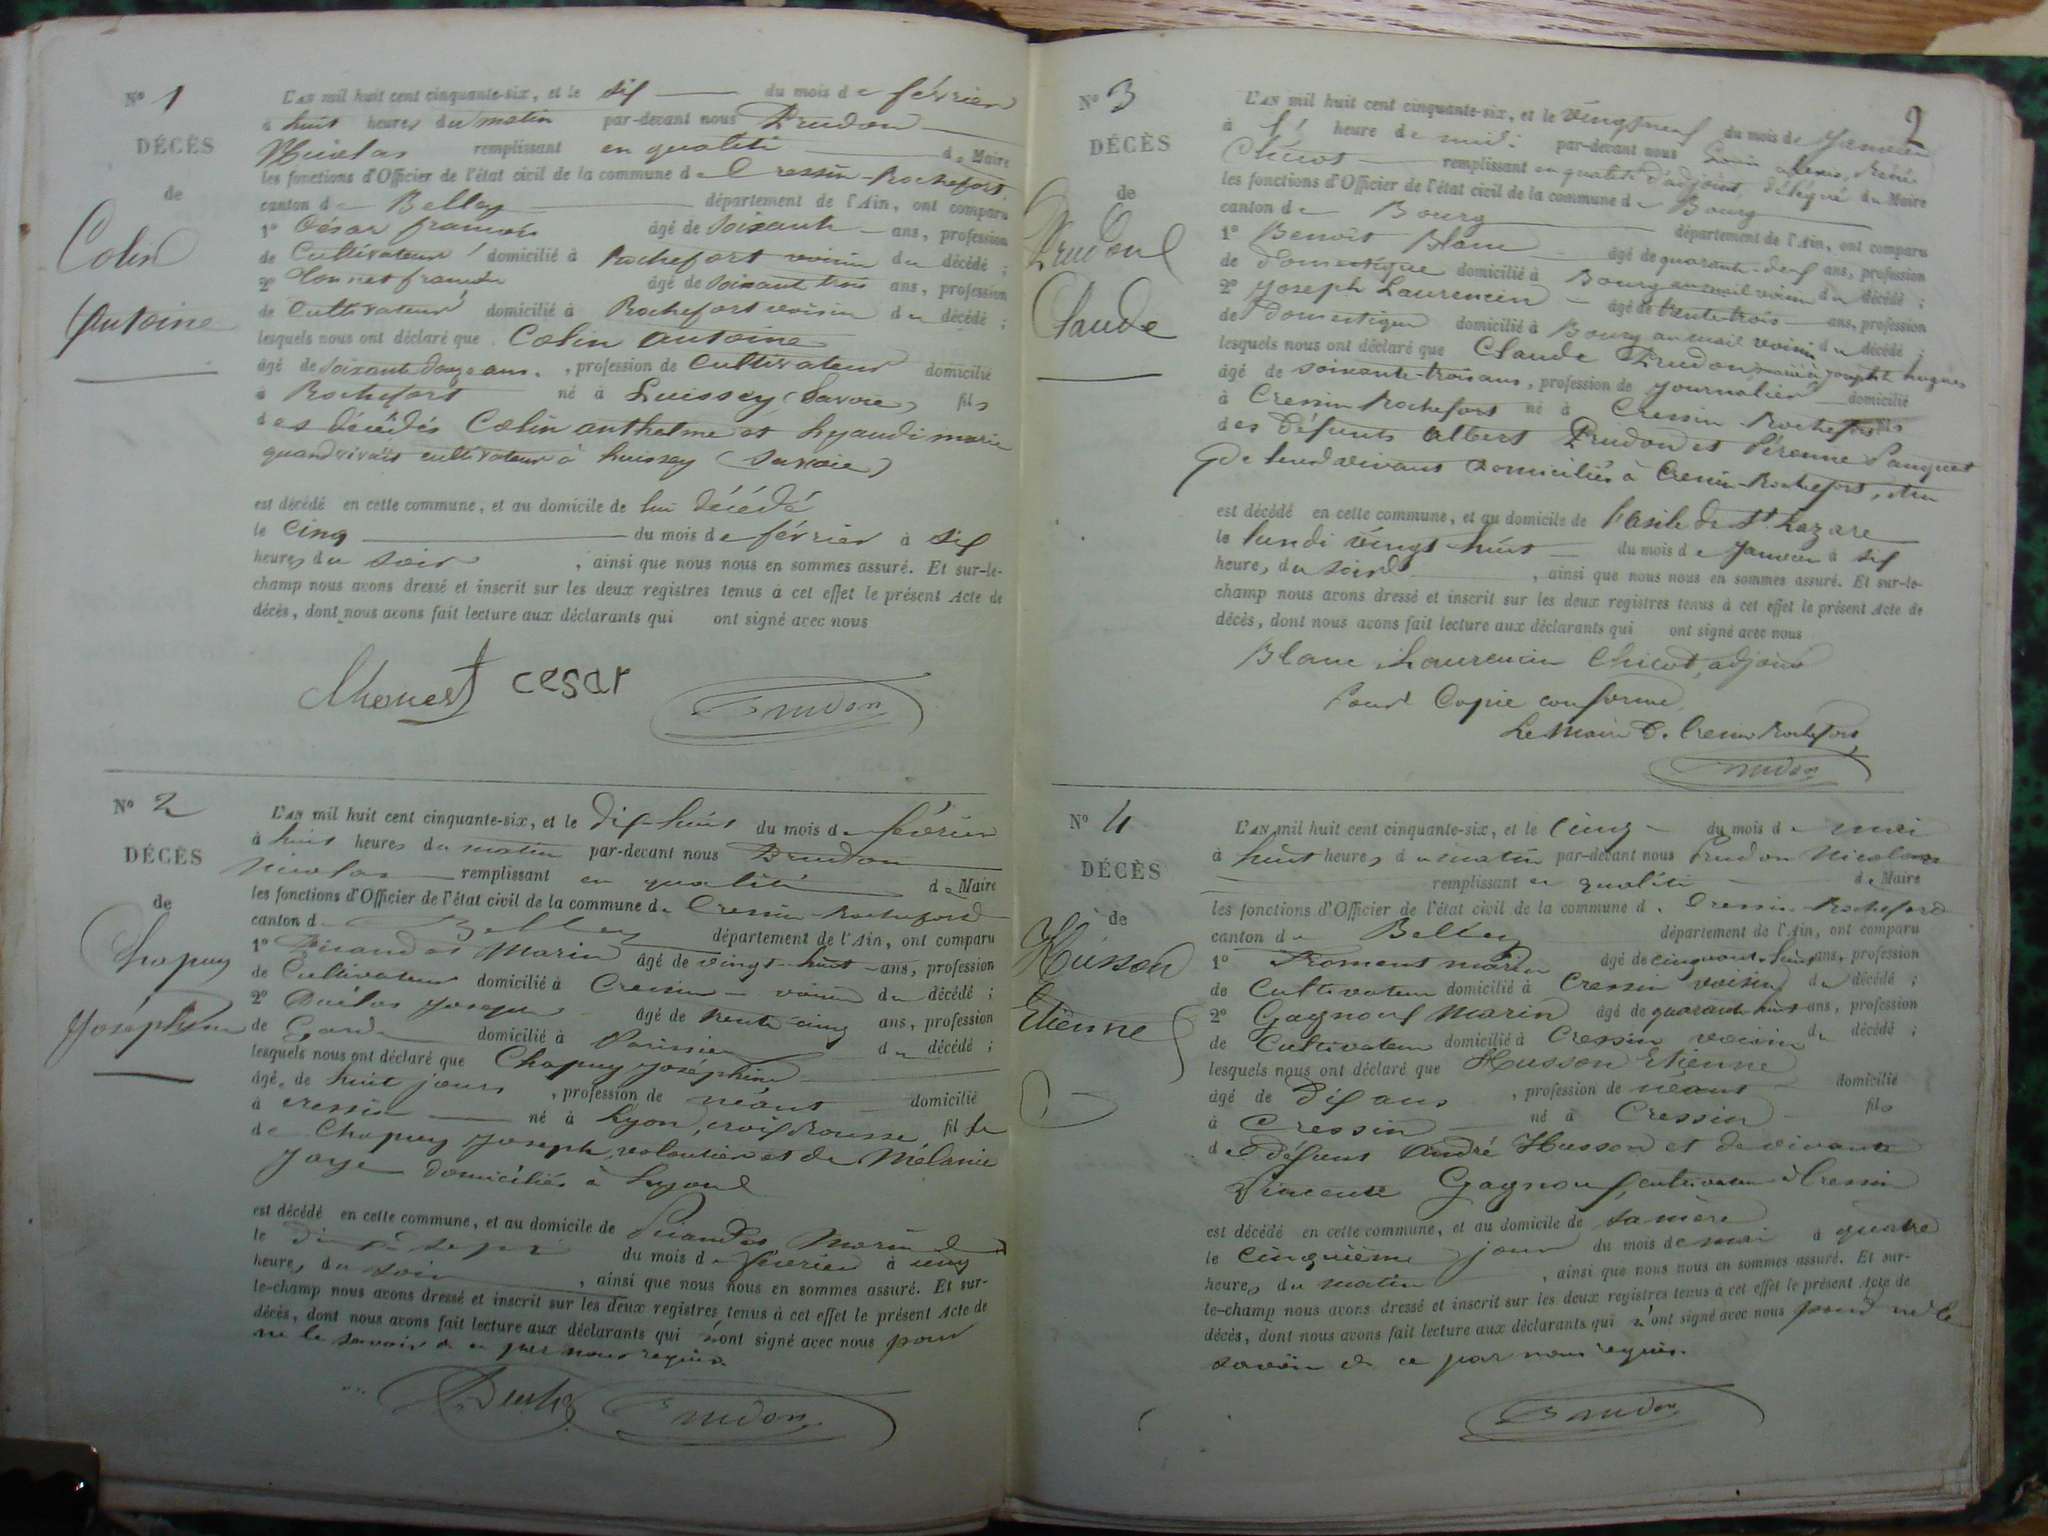 N° 1
DÉCÈS
de
Colin
Antoine
L'AN mil huit cent cinquante-six, et le six du mois de février
à huit heures du matin par-devant nous Prudon
Nicolas remplissant en qualité de Maire
les fonctions d'Officier de l'état civil de la commune de Cressin-Rochefort
canton de Belley département de l'Ain, ont comparu
1° César françois âgé de soixante ans, profession
de Cultivateur domicilié à Rochefort voisin du décédé ;
2° âgé de soixante trois ans, profession
de Cultivateur domicilié à Rochefort voisin du décédé ;
lesquels nous ont déclaré que Colin Antoine
âgé de soixante douze ans, profession de Cultivateur domicilié
à Rochefort né à Luissey (Savoie) fils
des décédés Colin anthelme et marie
quand vivait cultivateur à Luissey (Savoie)
est décédé en cette commune, et au domicile de lui décédé
le cinq du mois de février à six
heures du soir, ainsi que nous nous en sommes assuré. Et sur-le-
champ nous avons dressé et inscrit sur les deux registres tenus à cet effet le présent Acte de
décès, dont nous avons fait lecture aux déclarants qui ont signé avec nous
cesar Prudon
N° 2
DÉCÈS
de
Chapuy
Joséphine
L'AN mil huit cent cinquante-six, et le dix-huit du mois de février
à huit heures du matin par-devant nous Prudon
Nicolas remplissant en qualité de Maire
les fonctions d'Officier de l'état civil de la commune de Cressin-Rochefort
canton d Belley département de l'Ain, ont comparu
1° Marin âgé de vingt-huit ans, profession
de Cultivateur domicilié à Cressin voisin du décédé ;
2° Joseph âgé de trente cinq ans, profession
de Garde domicilié à Parissieu du décédé ;
lesquels nous ont déclaré que Chapuy Joséphine
âgé de huit jours, profession de néant domicilié
à cressin né à Lyon, croix Rousse, fille
de Chapuy Joseph, veloutier et de Mélanie
Joye domiciliés à Lyon
est décédé en cette commune, et au domicile de Marin
le dix sept du mois de février à cinq
heures du soir, ainsi que nous nous en sommes assuré. Et sur-
le-champ nous avons dressé et inscrit sur les deux registres tenus à cet effet le présent Acte de
décès, dont nous avons fait lecture aux déclarants qui n'ont signé avec nous pour
ne le savoir de ce par nous requis.
Prudon
2
N° 3
DÉCÈS
de
Prudon
Claude
L'AN mil huit cent cinquante-six, et le vingt neuf du mois de Janvier
à heure de midi par-devant nous Louis alexis, René
Chicot remplissant en qualité d'adjoint, délégué du Maire
les fonctions d'Officier de l'état civil de la commune de Bourg
canton de Bourg département de l'Ain, ont comparu
1° Benoit Blanc âgé de quarante-deux ans, profession
de domestique domicilié à Bourg au mail voisin du décédé ;
2° Joseph Laurencin âgé de trente-trois ans, profession
de Domestique domicilié à Bourg au mail voisin du décédé ;
lesquels nous ont déclaré que Claude Prudon, marié à Josephte hugues
âgé de soixante-trois ans, profession de Journalier domicilié
à Cressin Rochefort né à Cressin-Rochefort fils
des défunts Albert Prudon et Péronne Panquet
de leur vivant domiciliés à Cressin-Rochefort,
est décédé en cette commune, et au domicile de l'asile de St Lazare
le lundi vingt huit du mois de Janvier à six
heures du soir, ainsi que nous nous en sommes assuré. Et sur-le-
champ nous avons dressé et inscrit sur les deux registres tenus à cet effet le présent Acte de
décès, dont nous avons fait lecture aux déclarants qui ont signé avec nous
Blanc Laurencin Chicot, adjoint
Pour Copie conforme
Le Maire de Cressin Rochefort
Prudon
N° 4
DÉCÈS
de
Husson
Etienne
L'AN mil huit cent cinquante-six, et le cinq du mois de mai
à huit heures du matin par-devant nous Prudon Nicolas
remplissant en qualité de Maire
les fonctions d'Officier de l'état civil de la commune d. Cressin-Rochefort
canton de Belley département de l'Ain, ont comparu
1° Froment marin âgé de cinquante-huit ans, profession
de Cultivateur domicilié à Cressin voisin du décédé ;
2° Gagnoux Marin âgé de quarante huit ans, profession
de Cultivateur domicilié à Cressin voisin du décédé ;
lesquels nous ont déclaré que Husson Etienne
âgé de dix ans, profession de néant domicilié
à Cressin né à Cressin fils
de défunt André Husson et de vivante
Vincente Gagnoux, cultivateur à Cressin
est décédé en cette commune, et au domicile de sa mère
le cinquième jour du mois de mai à quatre
heures du matin, ainsi que nous nous en sommes assuré. Et sur-
le-champ nous avons dressé et inscrit sur les deux registres tenus à cet effet le présent Acte de
décès, dont nous avons fait lecture aux déclarants qui n'ont signé avec nous pour ne le
savoir de ce par nous requis.
Prudon